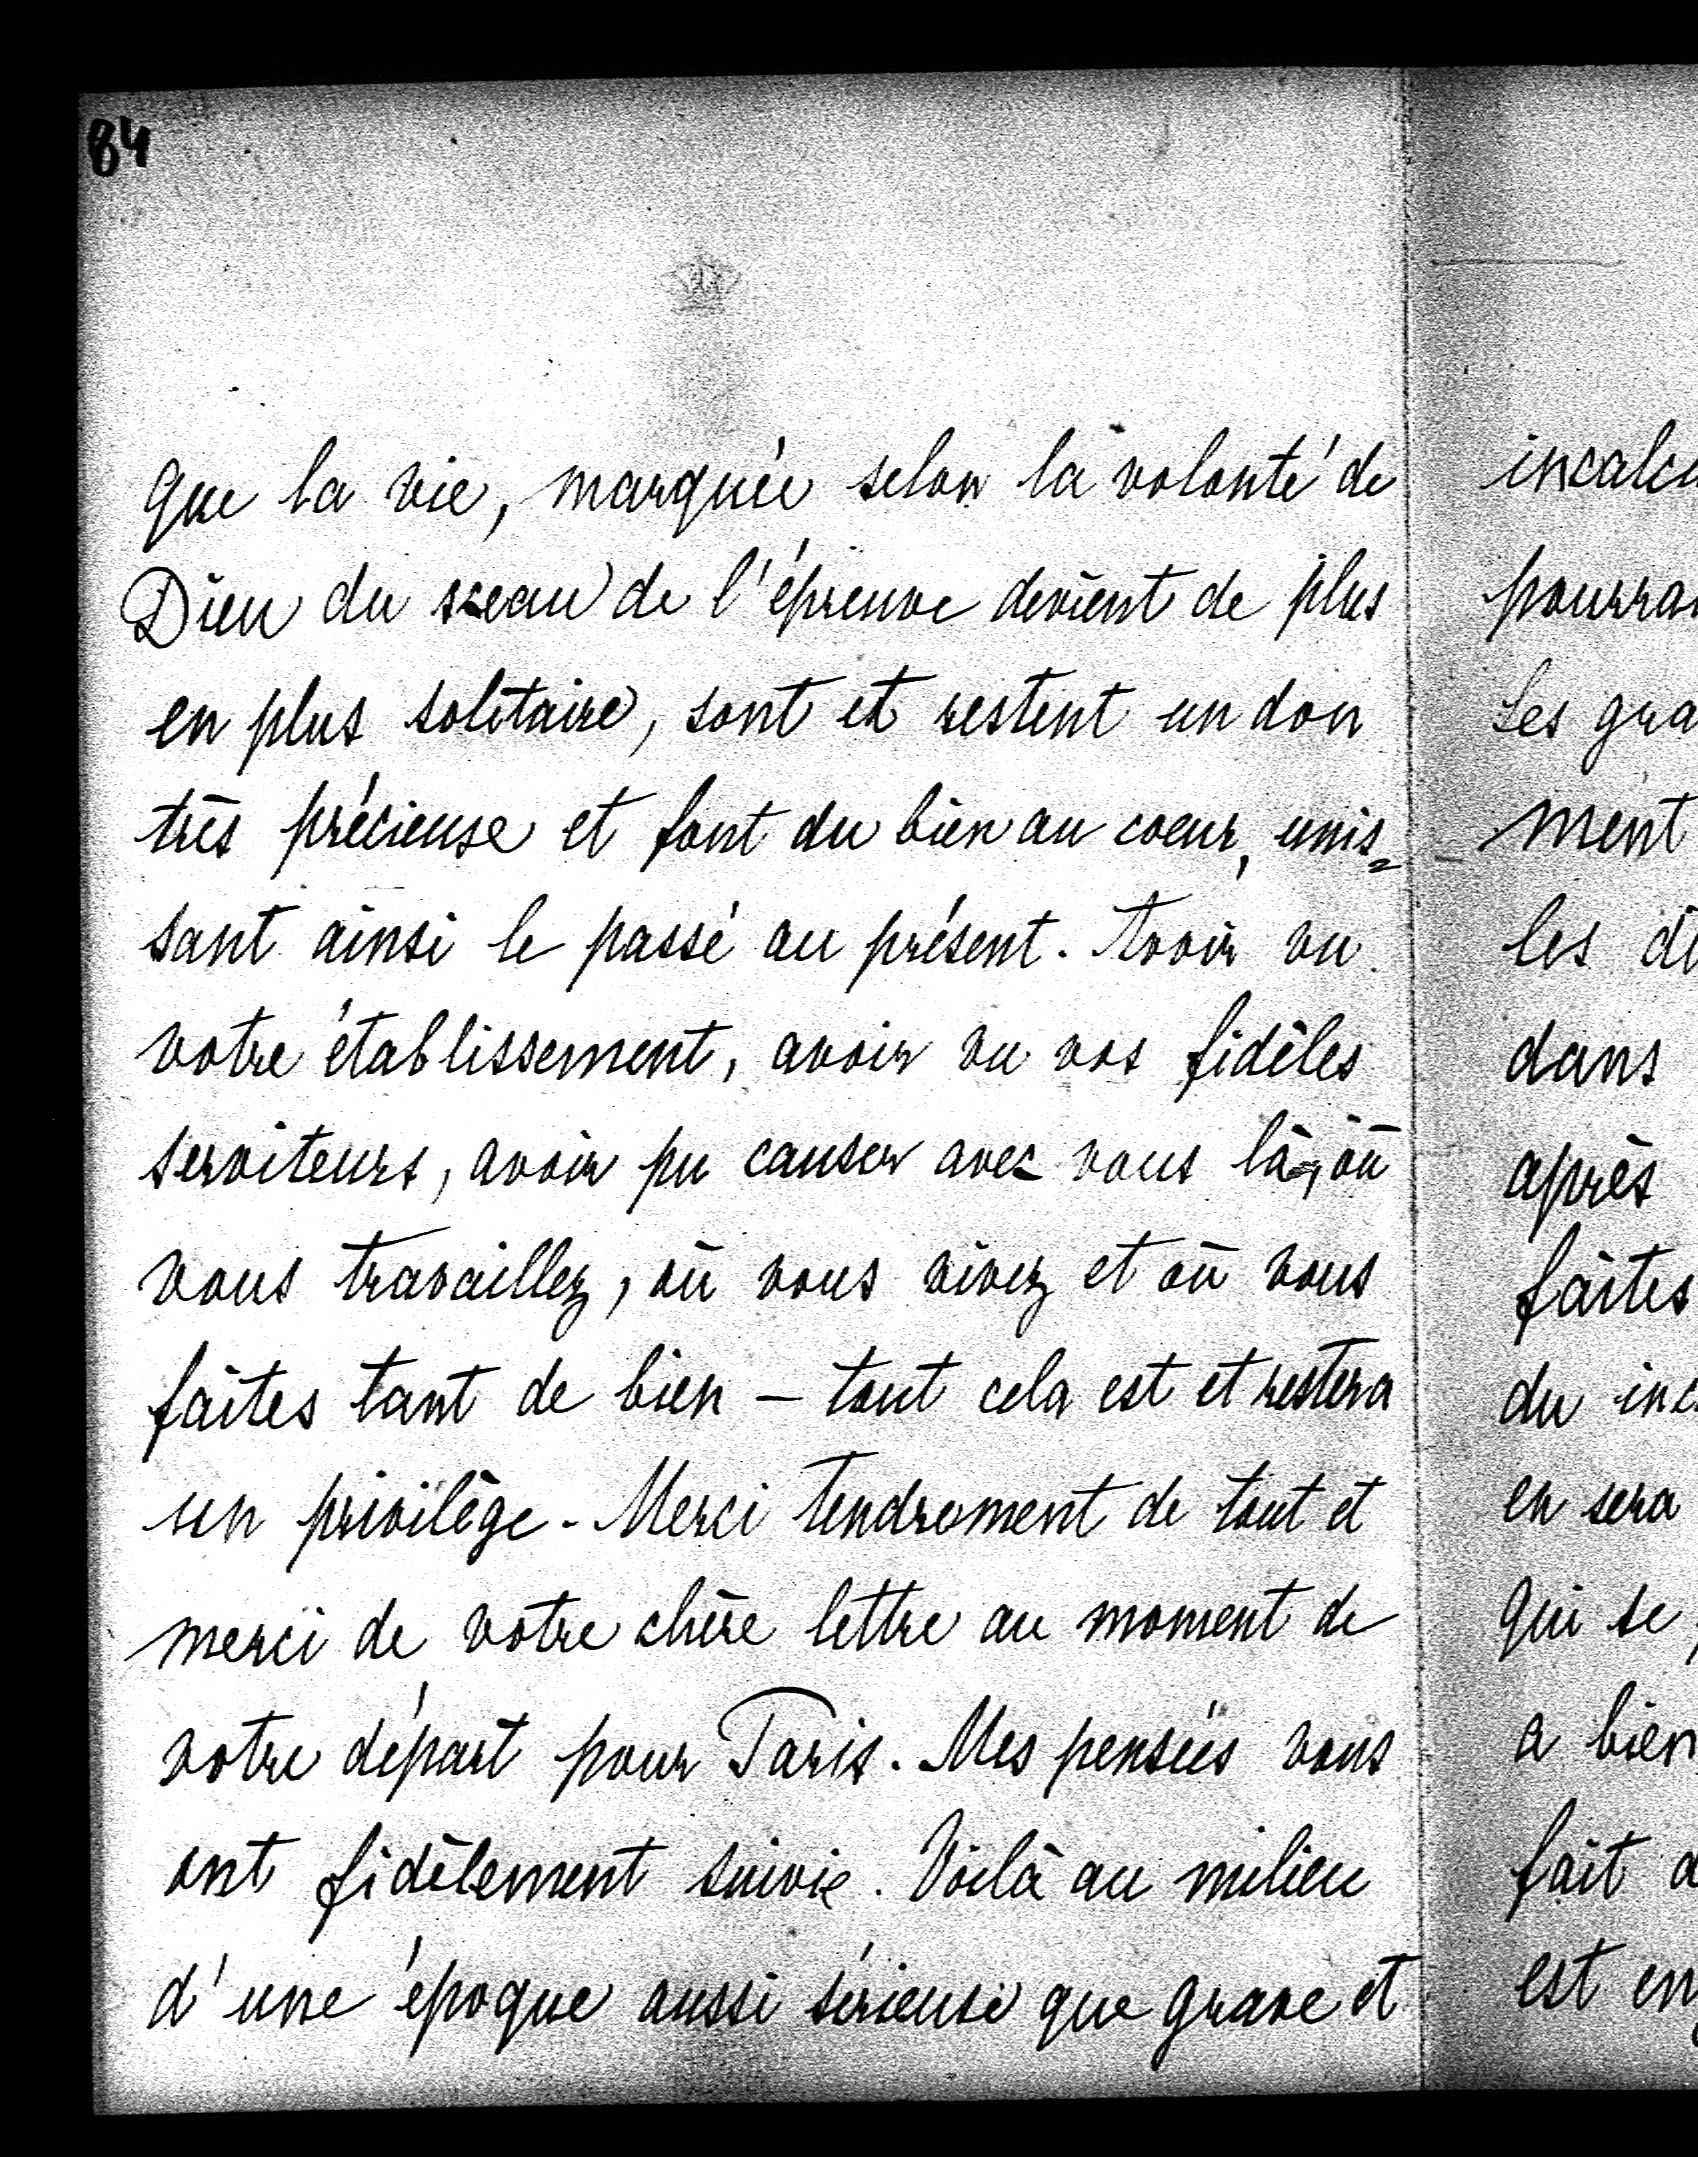 84
que la vie, marquée selon la volonté de
Dieu du sceau de l'épreuve devient de plus
en plus solitaire, sont et restent un don
très précieuse et font du bien au coeur, unis=
sant ainsi le passé au présent. Avoir vu
votre établissement, avoir vu vos fidèles
serviteurs, avoir pu causer avec vous là, où
vous travaillez, où vous vivez et où vous
faites tant de bien – tout cela est et restera
un privilège. Merci tendrement de tout et
merci de votre chère lettre au moment de
votre départ pour Paris. Mes pensées vous
ont fidèlement suivie. Voilà au milieu
d'une époque aussi sérieuse que grave et
incalcu
pourra
Les gra
ment
les di
dans
après
faites
du inc
en sera
qui se
a bien
fait d
est en